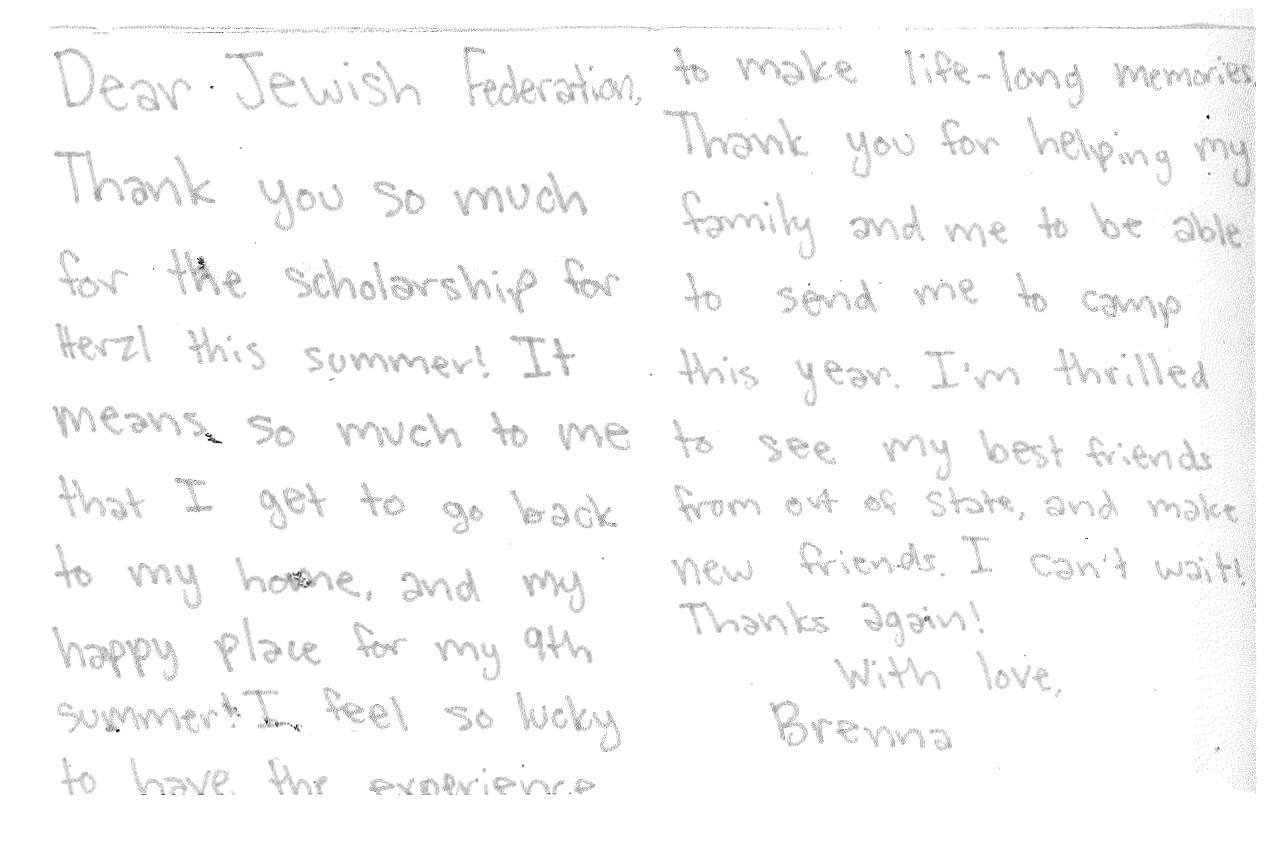 Dear Jewish Federation,
Thank you so much
for the scholarship for
Herzl this summer! It
means so much to me
that I get to go back
to my home, and my
happy place for my 9th
summer! I feel so lucky
to have the experience
to make life-long memories.
Thank you for helping my
family and me to be able
to send me to camp
this year. I'm thrilled
to see my best friends
from out of state, and make
new friends. I can't wait!
Thanks again!
With love,
Brenna